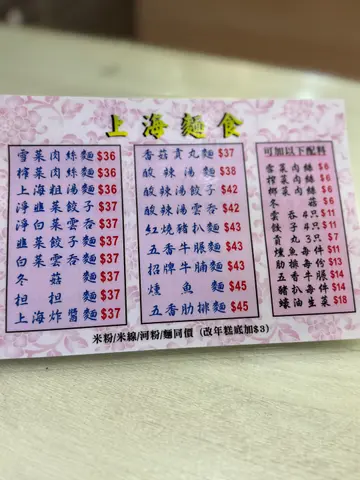 上海麵食
雪菜肉絲麵 $36
榨菜肉絲麵 $36
上海粗湯麵 $36
淨韭菜餃子 $37
淨白菜雲吞 $37
韭菜餃子麵 $37
白菜雲吞麵 $37
冬菇麵 $37
担担麵 $37
上海炸醬麵 $37
香菇貢丸麵 $37
酸辣湯麵 $38
酸辣湯餃子 $42
酸辣湯雲吞 $42
紅燒豬扒麵 $43
五香牛脤麵 $43
招牌牛腩麵 $43
燻魚麵 $45
五香肋排麵 $45
可加以下配料
雪菜肉絲 $6
榨菜肉絲 $6
梆菜肉絲 $6
冬菇 $6
雲吞4只 $11
餃子4只 $11
貢丸3只 $7
燻魚每件 $11
肋排每份 $13
五香牛脤 $14
豬扒每件 $14
蠔油生菜 $18
米粉/米線/河粉/麵同價 (改年糕底加$3)